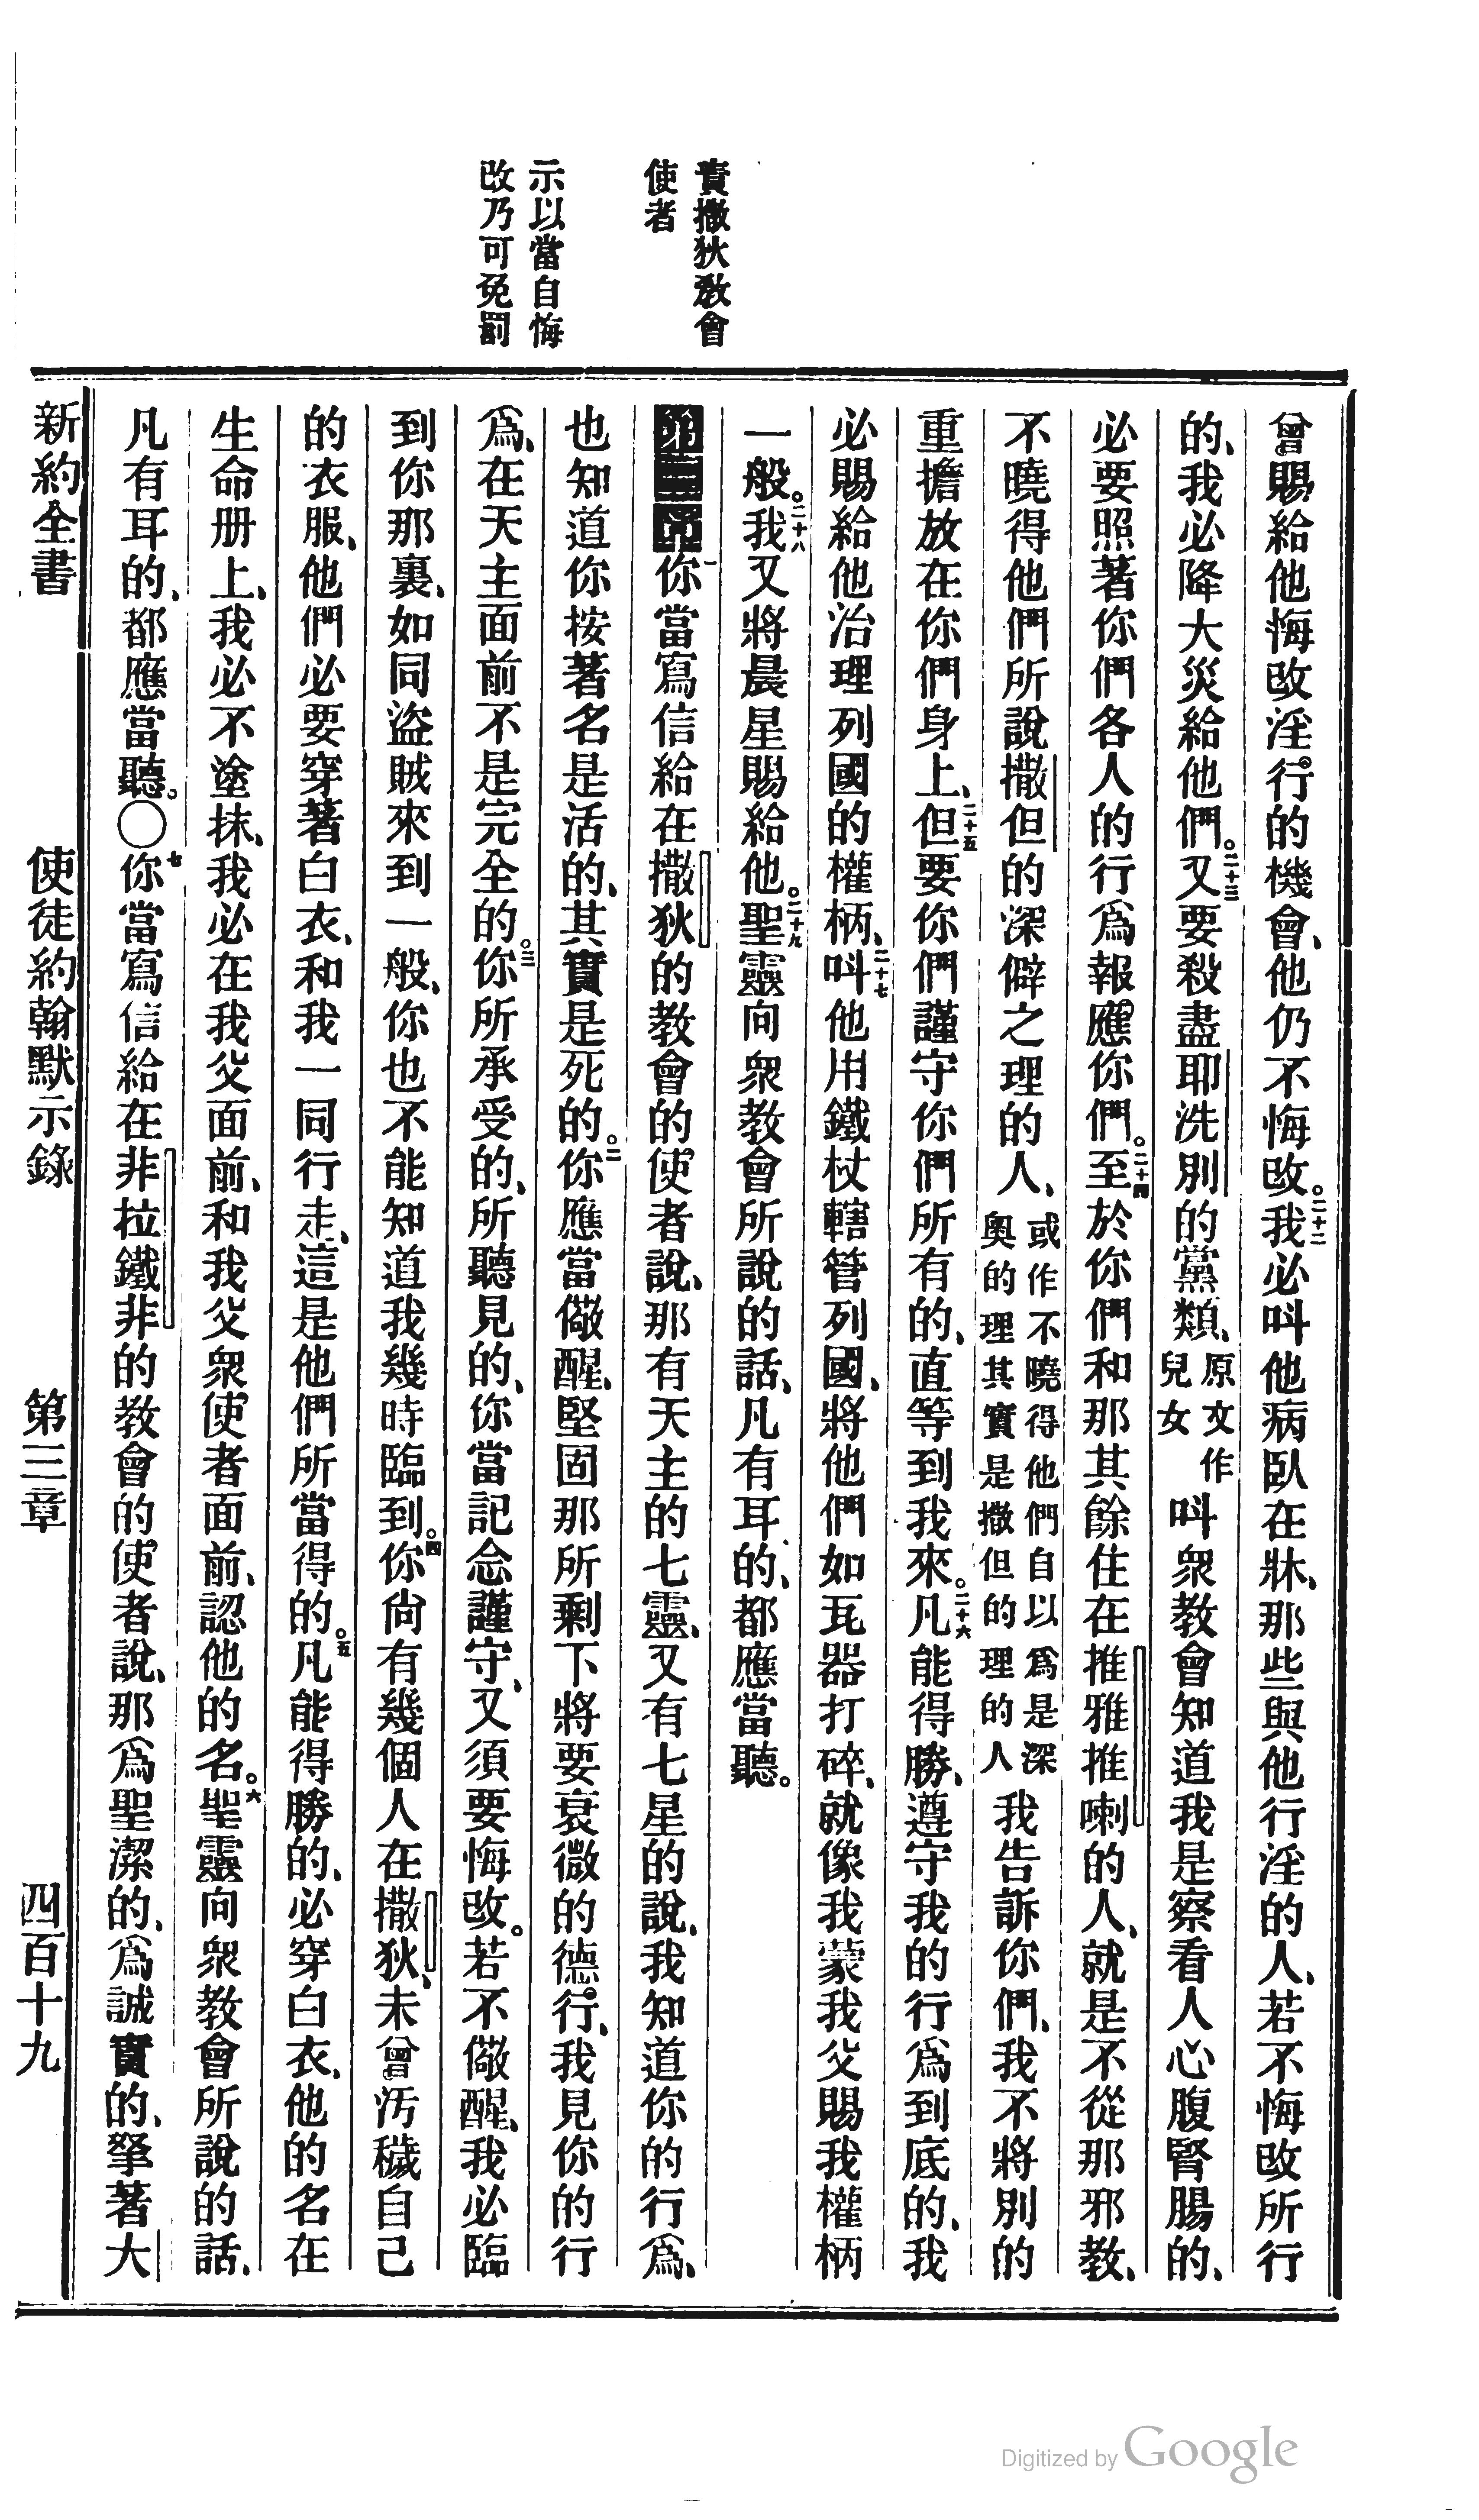 責撒狄教會
使者
示以當自悔
改乃可免罰
曾賜給他悔改淫行的機會、他仍不悔改。二十二我必叫他病臥在牀、那些與他行淫的人、若不悔改所行
的、我必降大災給他們。二十三又要殺盡耶洗別的黨類、原文作兒女叫衆教會知道我是察看人心腹腎腸的、
必要照著你們各人的行爲報應你們。二十四至於你們和那其餘住在推雅推喇的人、就是不從那邪教、
不曉得他們所說撒但的深僻之理的人、或作不曉得他們自以爲是深奧的理其實是撒但的理的人我告訴你們、我不將別的
重擔放在你們身上、二十五但要你們謹守你們所有的、直等到我來。二十六凡能得勝、遵守我的行爲到底的、我
必賜給他治理列國的權柄、二十七叫他用鐵杖轄管列國、將他們如瓦器打碎、就像我蒙我父賜我權柄
一般。二十八我又將晨星賜給他。二十九聖靈向衆教會所說的話、凡有耳的、都應當聽。
第三章一你當寫信給在撒狄的教會的使者說、那有天主的七靈、又有七星的說、我知道你的行爲、
也知道你按著名是活的、其實是死的。二你應當儆醒、堅固那所剩下將要衰微的德行、我見你的行
爲、在天主面前不是完全的。三你所承受的、所聽見的、你當記念謹守、又須要悔改。若不儆醒、我必臨
到你那裏、如同盜賊來到一般、你也不能知道我幾時臨到。四你尙有幾個人在撒狄、未曾汚穢自己
的衣服、他們必要穿著白衣、和我一同行走、這是他們所當得的。五凡能得勝的、必穿白衣、他的名在
生命册上、我必不塗抹、我必在我父面前、和我父衆使者面前、認他的名。六聖靈向衆教會所說的話、
凡有耳的、都應當聽。〇七你當寫信給在非拉鐵非的教會的使者說、那爲聖潔的、爲誠實的、拏著大
新約全書　使徒約翰默示錄　第三章　四百十九
Digitized by Google